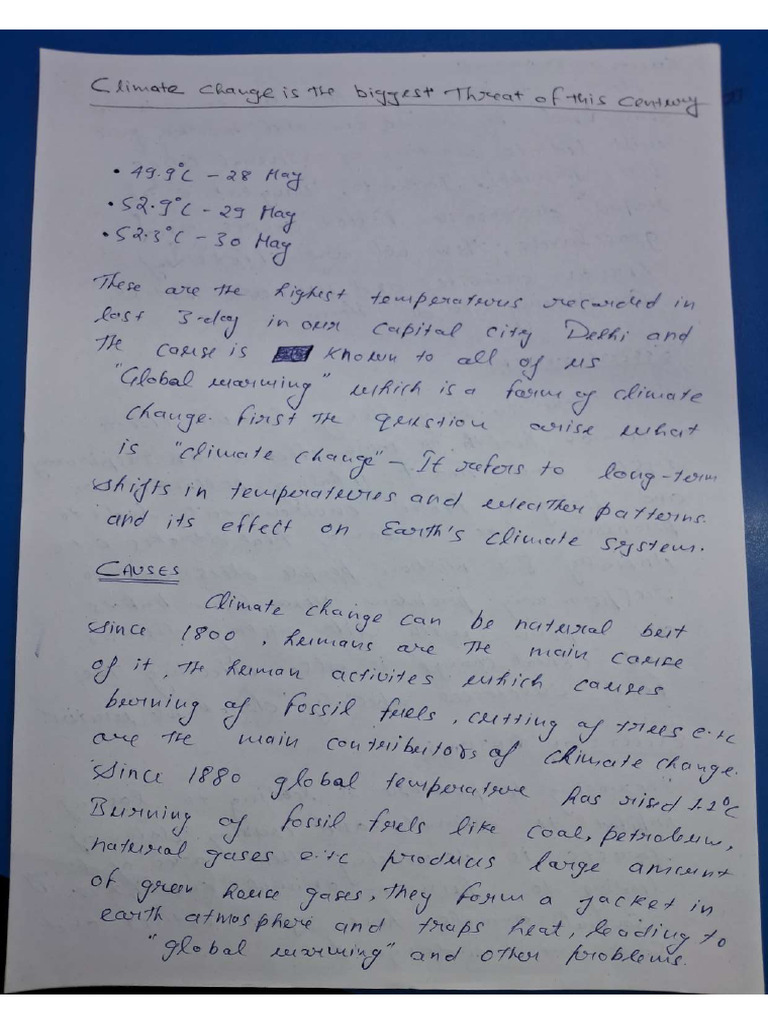 Climate change is the biggest Threat of this Century
• 49.9°C - 28 May
• 52.9°C - 29 May
• 52.3°C - 30 May
These are the highest temperatures recorded in
last 3-day in our capital city Delhi and
the cause is known to all of us
"Global warming" which is a form of climate
change. First the question arise what
is "climate change" - It refers to long-term
shifts in temperatures and weather patterns.
and its effect on Earth's climate system.
CAUSES
Climate change can be natural but
since 1800, humans are the main cause
of it, the human activites which causes
burning of fossil fuels, cutting of trees e.tc
are the main contributors of climate change.
Since 1880 global temperature has rised 1.1°C
Burning of fossil fuels like coal, petroleum,
natural gases e.tc produces large amount
of green house gases, they form a jacket in
earth atmosphere and traps heat, leading to
"global warming" and other problems.